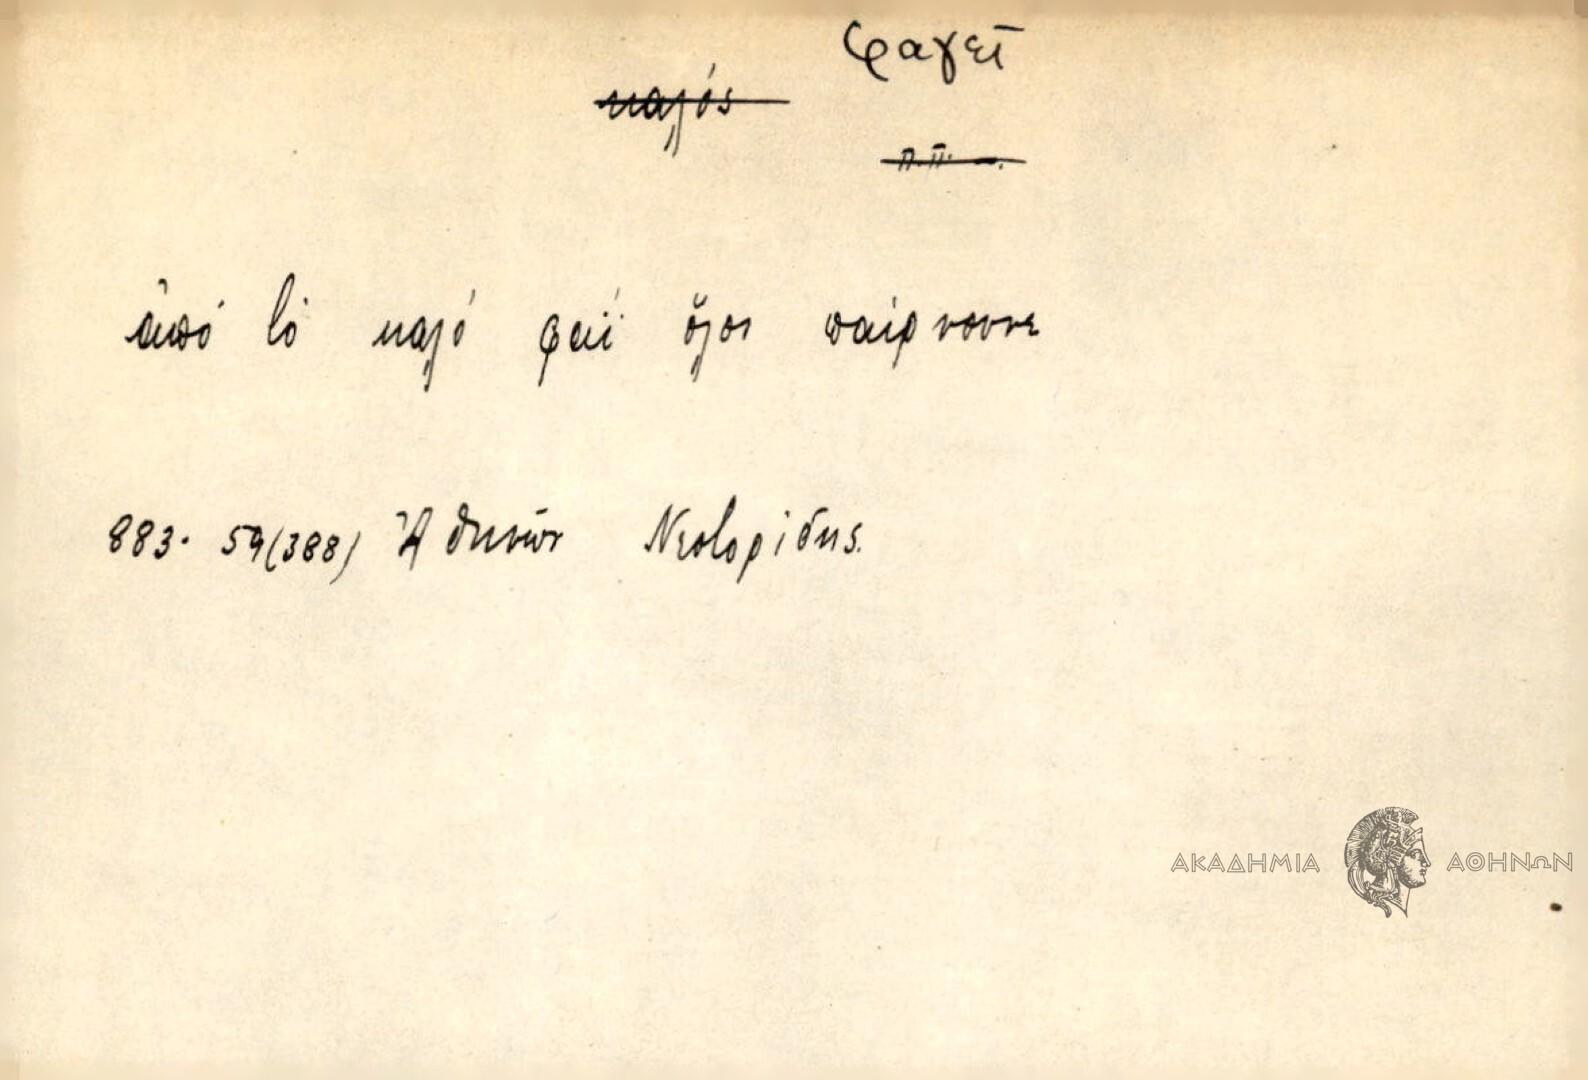 φαγεῖ
καλός
π.π.
ἀπό τό καλό φαΐ ὅλοι παίρνουνε
883. 59(388) Ἀθηνῶν Νεστορίδης.
ΑΚΑΔΗΜΙΑ ΑΘΗΝΩΝ